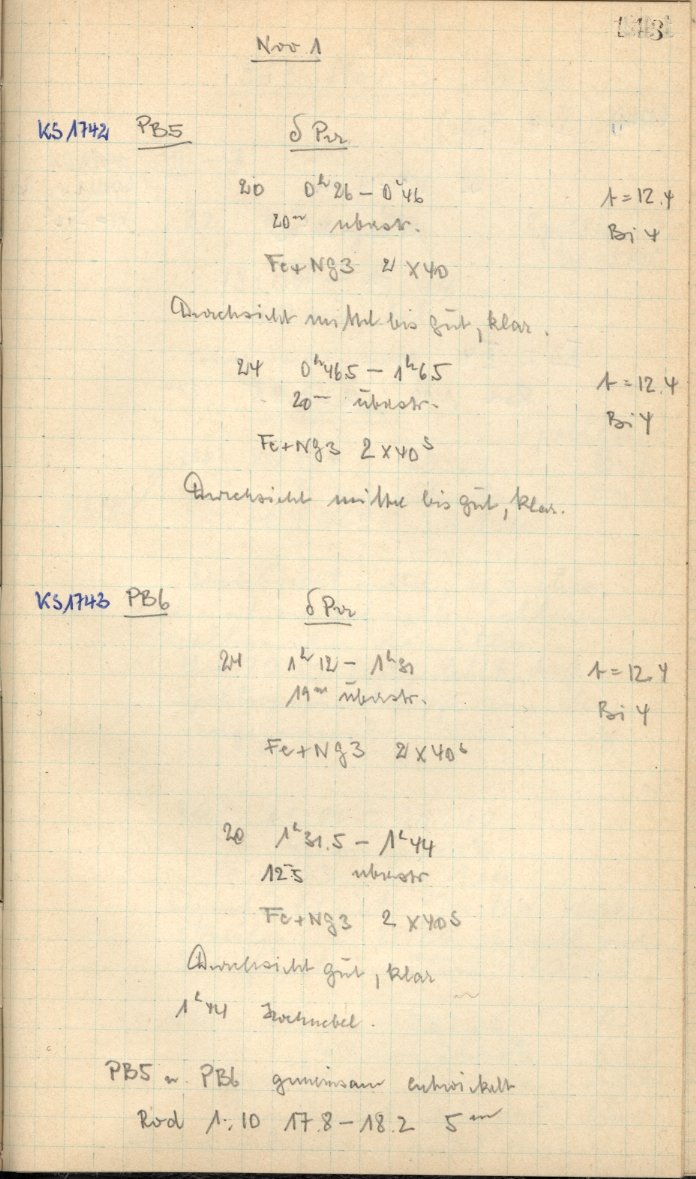 Nov 1
KS1742 PB5 δ Per
20 0ʰ26 – 0ʰ46 t = 12.4
20ᵐ überstr. Bi 4
Fe+Ng3 2 x 40
Durchsicht mittel bis gut, klar.
24 0ʰ46.5 – 1ʰ6.5 t = 12.4
20ᵐ überstr. Bi 4
Fe+Ng3 2 x 40ˢ
Durchsicht mittel bis gut, klar.
KS1743 PB6 δ Per
24 1ʰ12 – 1ʰ31 t = 12.4
19ᵐ überstr. Bi 4
Fe+Ng3 2 x 40ˢ
20 1ʰ31.5 – 1ʰ44
12ᵐ5 überstr
Fe+Ng3 2 x 40ˢ
Durchsicht gut, klar
1ʰ44 Hochnebel.
PB5 u. PB6 gemeinsam entwickelt
Rod 1:10 17.8 – 18.2 5ᵐ